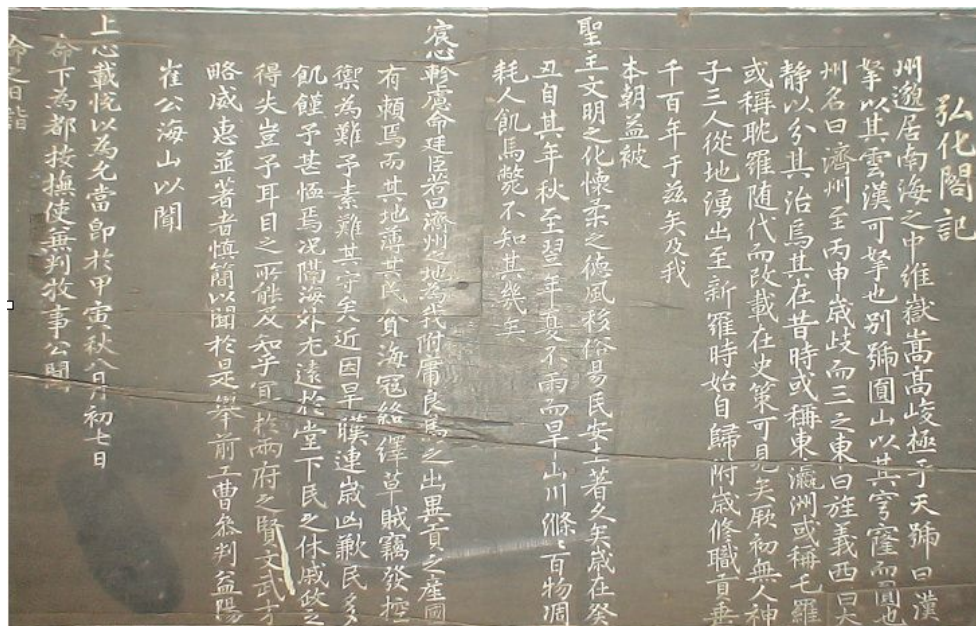 弘化閣記
州邈居南海之中維嶽嵩高峻極于天號曰漢
拏以其雲漢可拏也別號圓山以其穹窿而圓也
州名曰濟州至丙申歲歧而三之東曰旌義西曰大
静以分其治焉其在昔時或稱東瀛洲或稱毛羅
或稱耽羅随代而改載在史策可見矣厥初無人神
子三人從地湧出至新羅時始自歸附歲修職貢垂
千百年于兹矣及我
本朝益被
聖王文明之化懷柔之德風移俗易民安土著久矣歲在癸
丑自其年秋至翌年夏不雨而旱山川滌滌百物凋
耗人飢馬斃不知其幾年
宸心軫慮命廷臣若曰濟州之地為我附庸良馬之出異貢之產國
有頼焉而其地薄其民貧海冦絡繹草賊竊發控
禦為難予素難其守矣近因旱暵連歲凶歉民多
飢饉予甚恤焉况隔海外尤遠於堂下民之休戚政之
得失豈予耳目之所能及和乎宜於兩府之賢文武才
略威惠並著者慎簡以聞於是舉前工曹叅判益陽
崔公海山以聞
上心載悅以為允當即於甲寅秋八月初七日
命下為都按撫使無判牧事公聞
命之日